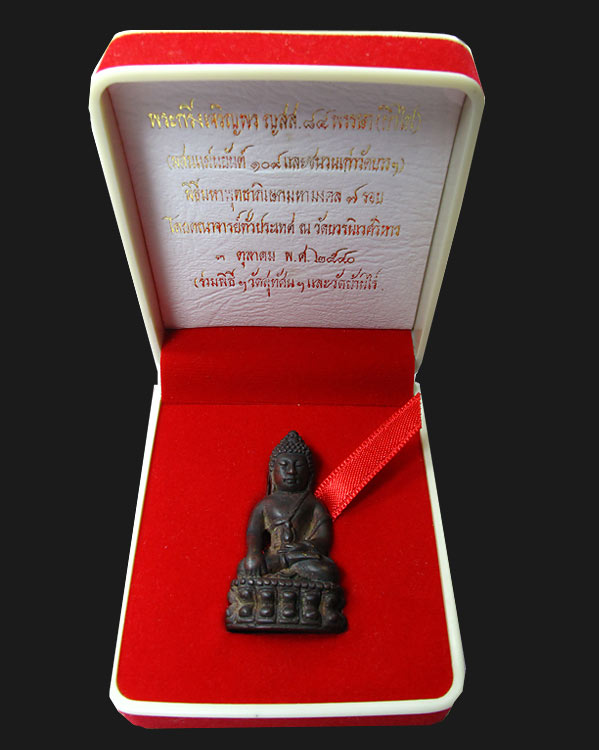 พระกริ่งเจริญพร ญสส. ๘๔ พรรษา
๑๐๘ และชนวนเก่าวัดบวรฯ)
พิธีมหาพุทธาภิเษกมหามงคล ๗ รอบ
โดยคณาจารย์ทั่วประเทศ ณ วัดบวรนิเวศวิหาร
๓ ตุลาคม พ.ศ. ๒๕๔๐
(ร่วมพิธี ฯ วัดสุทัศน ฯ และวัดป่าชัย